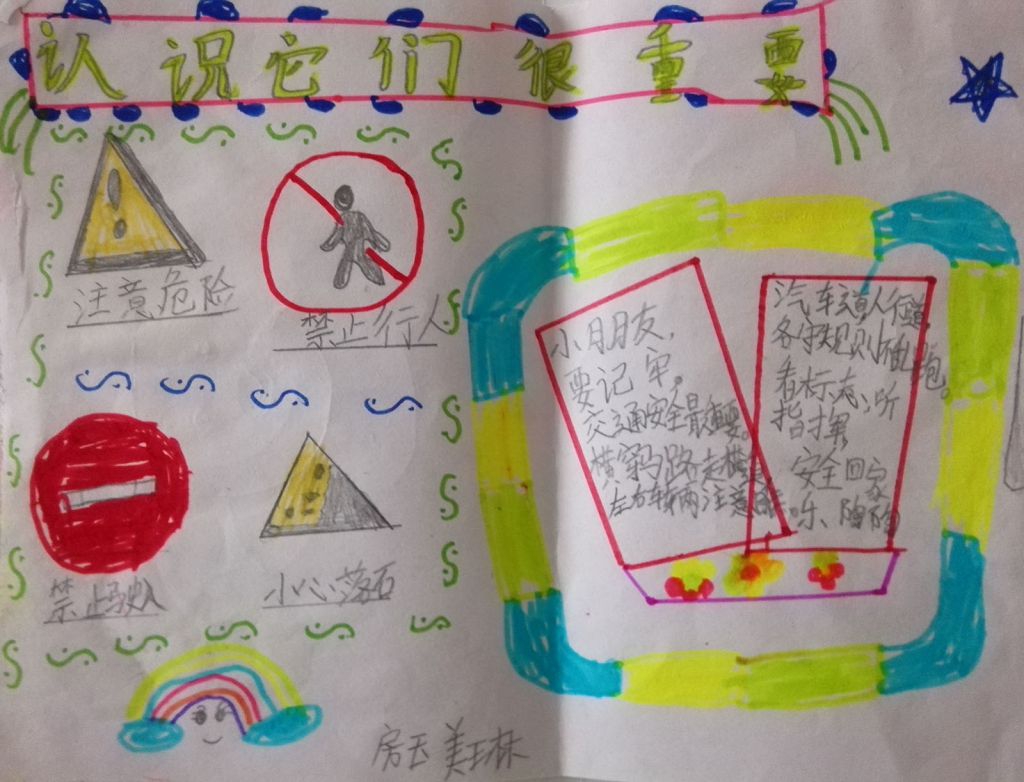 认识它们很重要
注意危险
禁止行人
禁止驶入
小心落石
小朋友,
要记牢。
交通安全最重要。
横穿马路走横道
左右车辆注意
汽车道人行道,
各守规则不乱跑。
看标志、听
指挥
安全回家
乐陶陶
房玉美琳